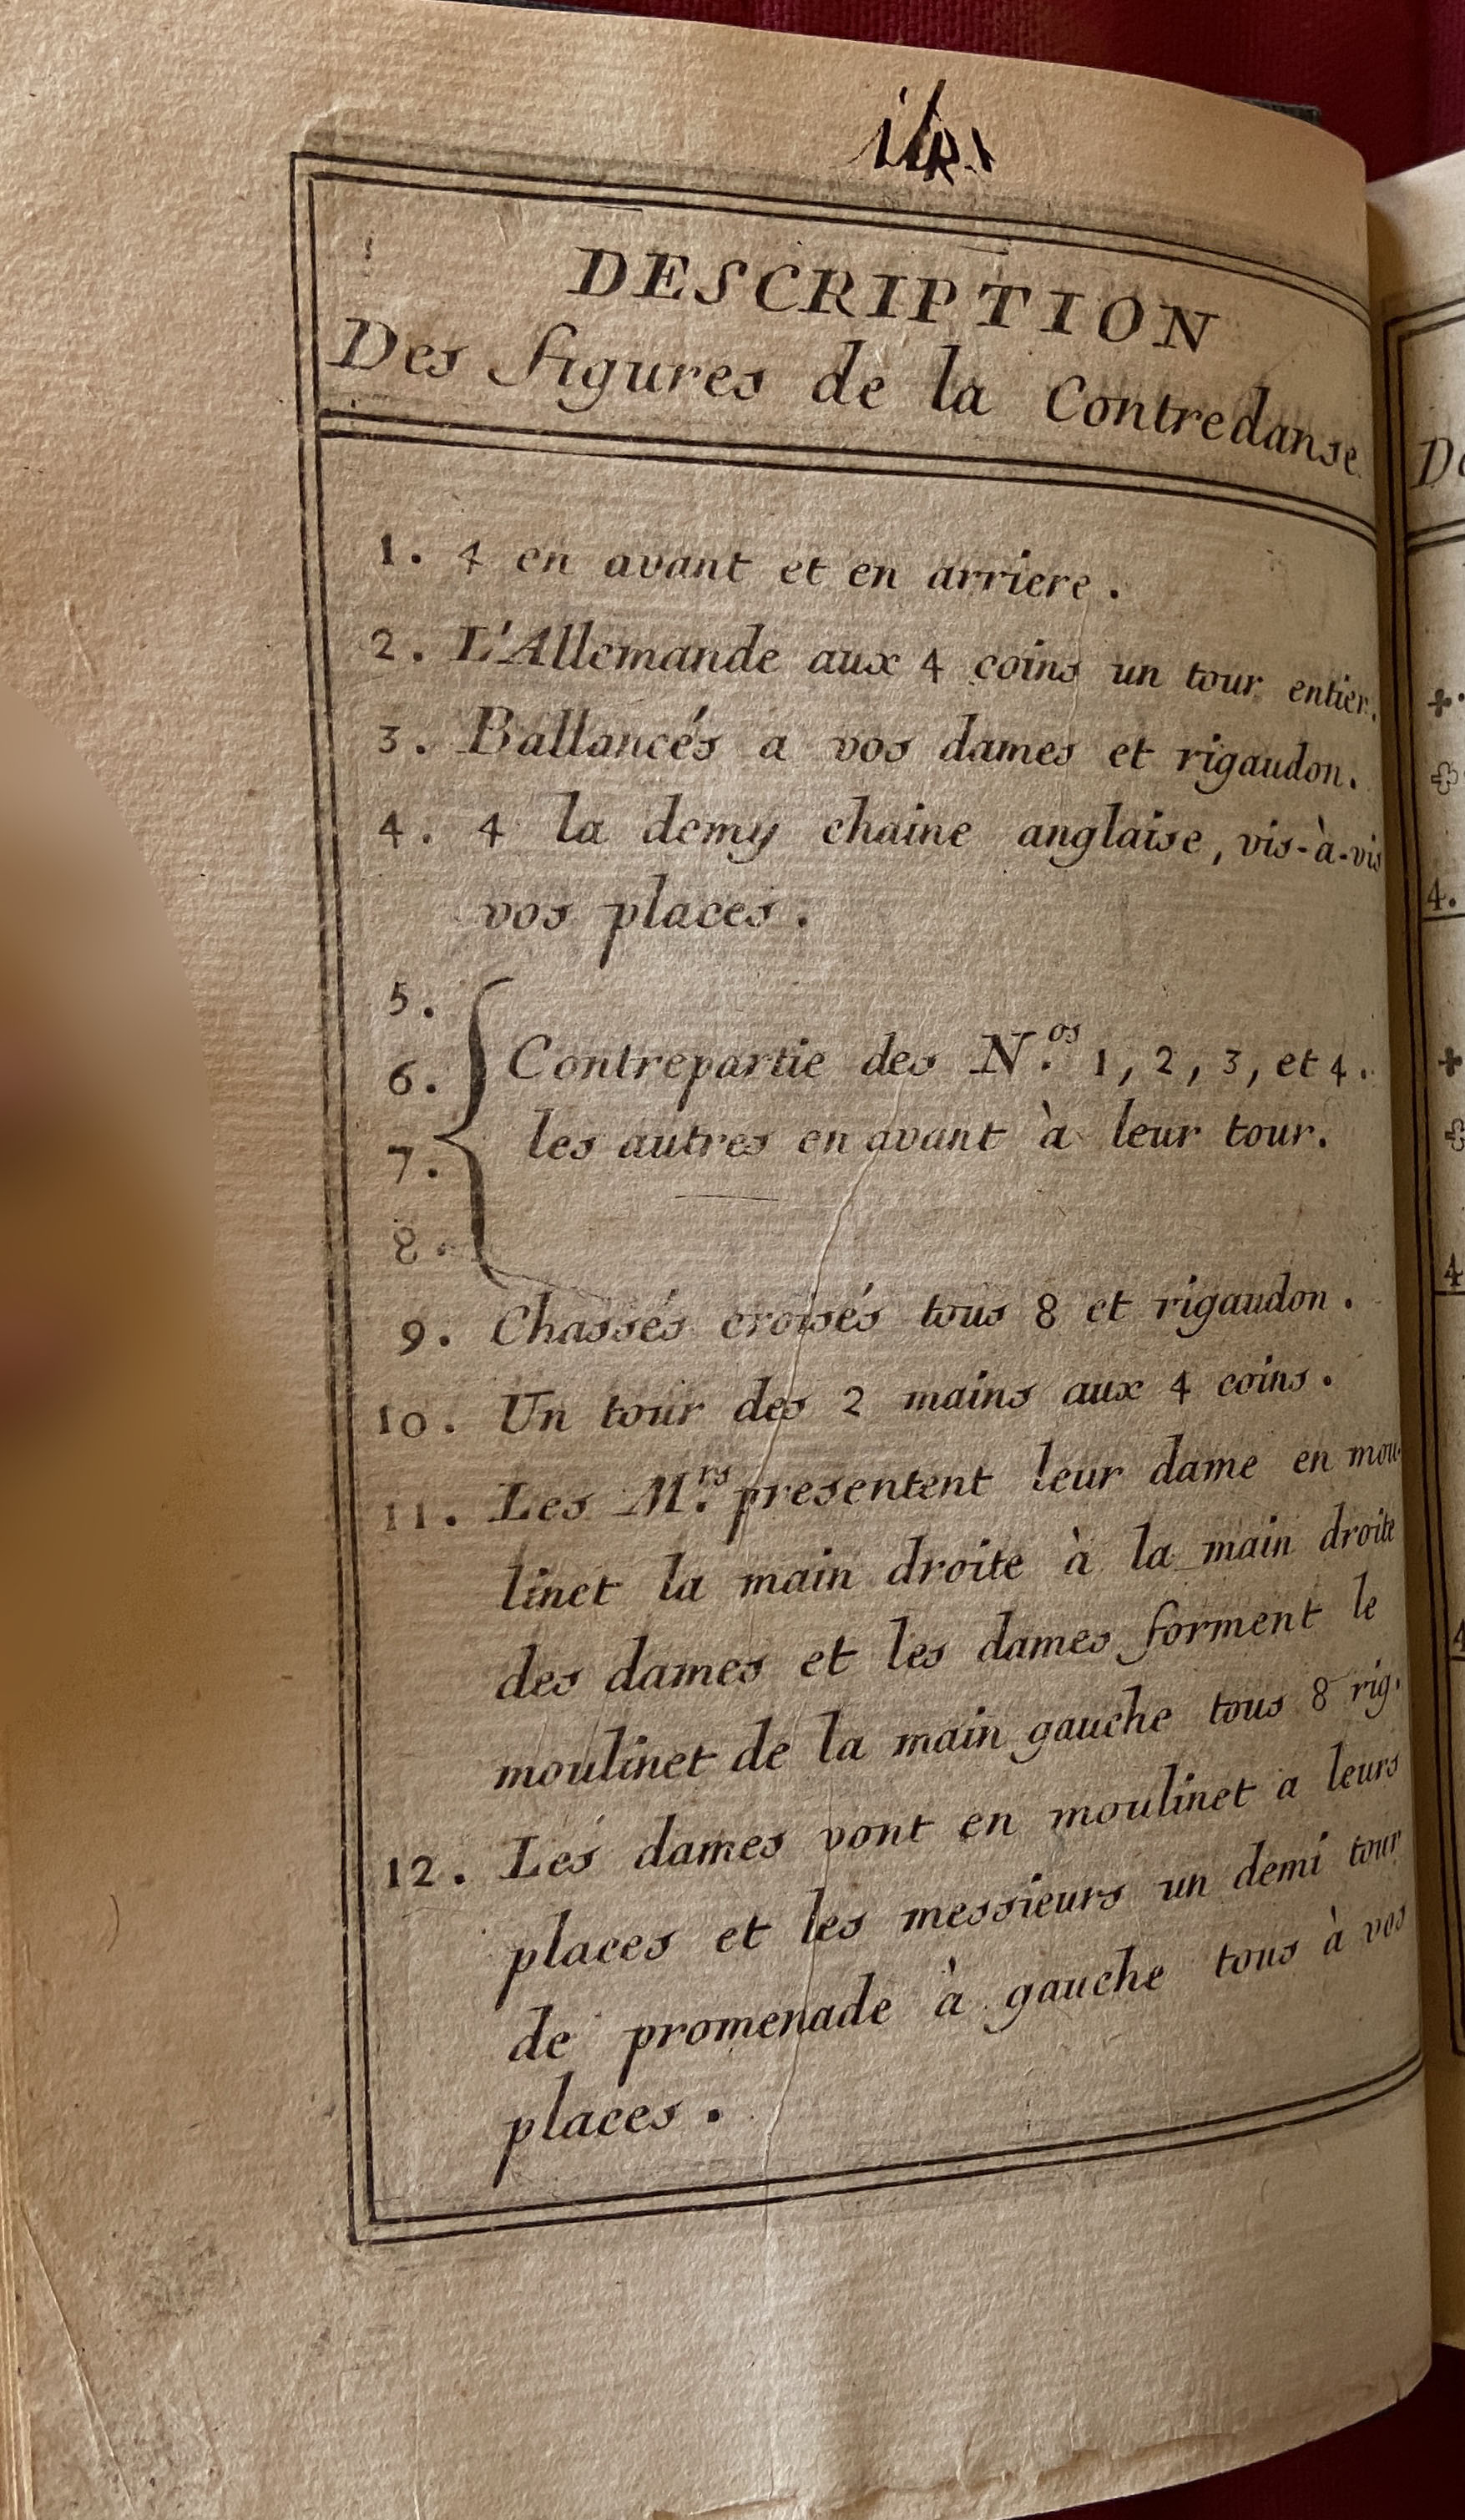 DESCRIPTION
Des figures de la Contredanse
1. 4 en avant et en arriere.
2. L'Allemande aux 4 coins un tour entier.
3. Ballancés a vos dames et rigaudon.
4. 4 la demy chaine anglaise, vis-à-vis
vos places.
5.
6. Contrepartie des N.os 1, 2, 3, et 4.
7. les autres en avant à leur tour.
8.
9. Chassés croisés tous 8 et rigaudon.
10. Un tour des 2 mains aux 4 coins.
11. Les M.rs presentent leur dame en mou-
linet la main droite à la main droite
des dames et les dames forment le
moulinet de la main gauche tous 8 rig.
12. Les dames vont en moulinet a leurs
places et les messieurs un demi tour
de promenade à gauche tous à vos
places.
4.
4